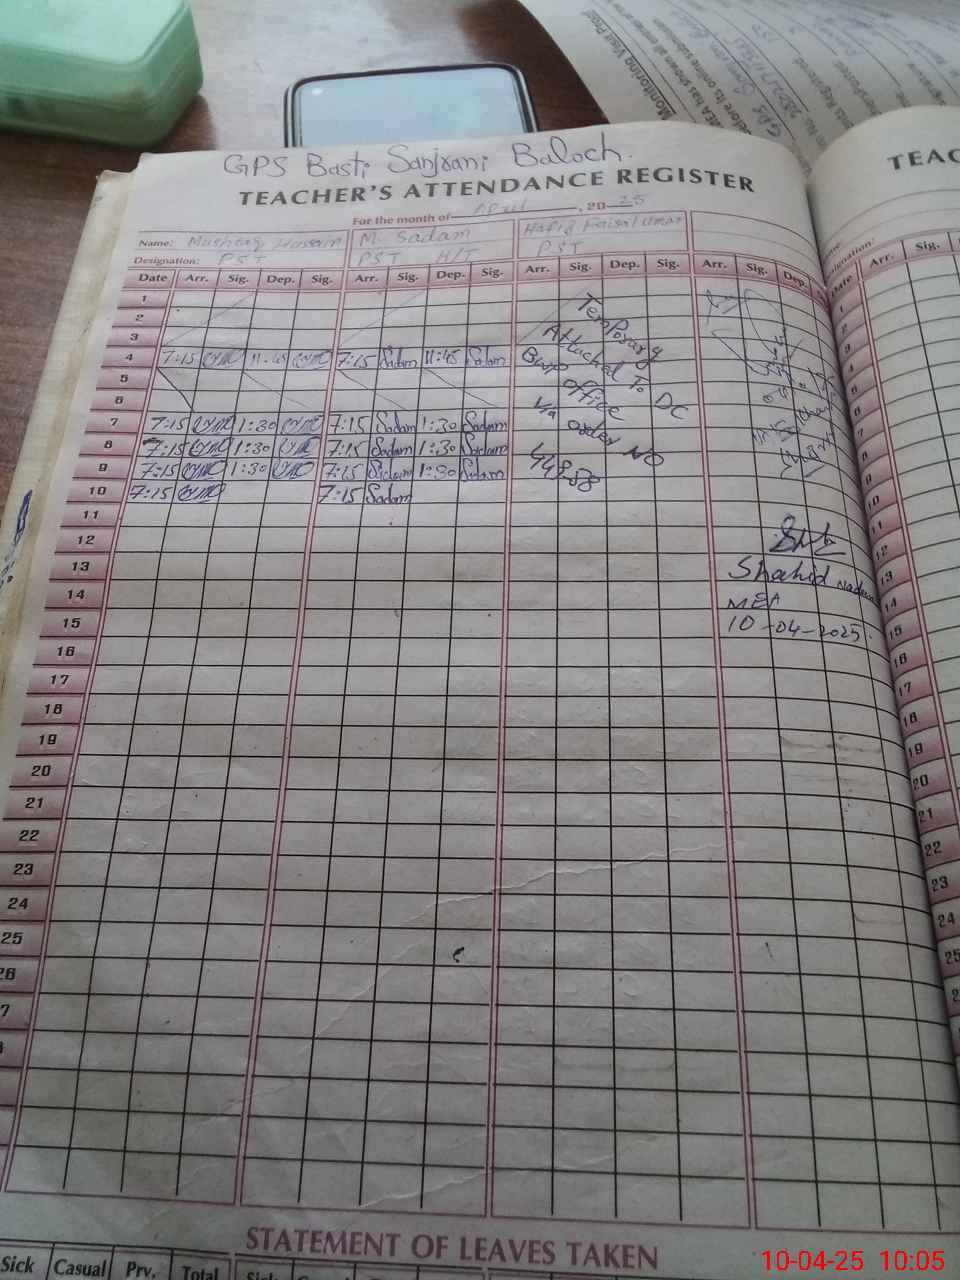 Monitoring Visit Proof
AEA has shown all
before its online submission
GPS Basti Sanjrani Baloch.
TEACHER'S ATTENDANCE REGISTER
For the month of April, 2025
Name: Mushtaq Hussain M. Sadam Hafiz Faisal Umar
Designation: PST PST H/T PST
Date Arr. Sig. Dep. Sig. Arr. Sig. Dep. Sig. Arr. Sig. Dep. Sig. Arr. Sig. Dep.
1
2
3
4 7:15 11:45 7:15 Sadam 11:45 Sadam
5
6
7 7:15 1:30 7:15 Sadam 1:30 Sadam
8 7:15 1:30 7:15 Sadam 1:30 Sadam
9 7:15 1:30 7:15 Sadam 1:30 Sadam
10 7:15 7:15 Sadam
Temporary
Attached To DC
Bwp office
via order NO
44958
11
12
13
14
15
Shahid Nadeem
MEA
10-04-2025.
16
17
18
19
20
21
22
23
24
25
26
STATEMENT OF LEAVES TAKEN
Sick Casual Prv. Total
TEAC
Date Arr. Sig.
1
2
3
4
5
6
7
8
9
10
11
12
13
14
15
16
17
18
19
20
21
22
23
24
25
10-04-25 10:05